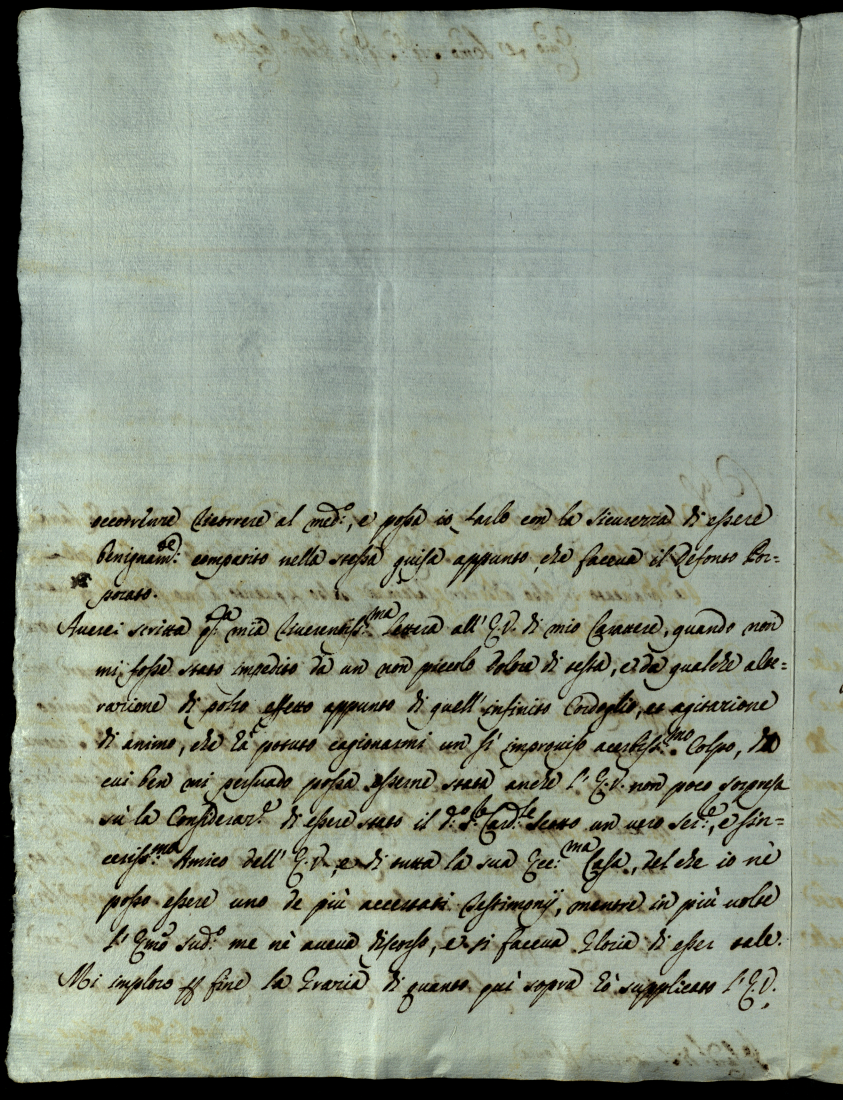 occorrenze ricorrere al med.º, e possa io farlo con la sicurezza di essere
benignam.te compatito nella stessa guisa appunto, che faceva il defonto Por=
porato.
Averei scritta q.ta mia Riverentiss.ma lettera all' E.V. di mio Carattere, quando non
mi fosse stato impedito da un non piccolo dolore di testa, et da qualche alte=
razione di polso effetto appunto di quell' infinito Cordoglio, et agitazione
di animo, che hà potuto cagionarmi un sì improviso acerbiss.mo Colpo, di
cui ben mi persuado possa esserne stata anche l' E.V. non poco sorpresa
sù la Consideraz.e di essere stato il d.º S.r Card.le Scotto un vero Ser.e, e sin=
ceriss.mo Amico dell' E.V. e di tutta la sua Ecc.ma Casa, del che io nè
posso essere uno de più accertati Testimonij, mentre in più volte
l' Emo Sud.º me nè aveva discorso, e si faceva Gloria di esser tale.
Mi imploro p fine la Grazia di quanto quì sopra hò supplicato l' E.V.